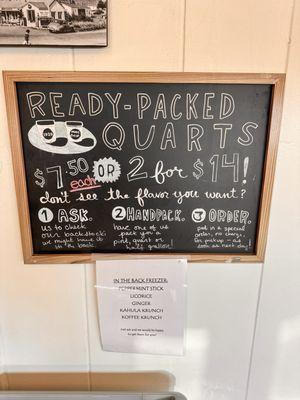 READY-PACKED
QUARTS
$7.50 each OR 2 for $14!
don't see the flavor you want?
1 ASK.
us to check
our backstock;
we might have it
in the back!
2 HANDPACK.
have one of us
pack you a
pint, quart or
half gallon!
3 ORDER.
put in a special
order, no charge,
for pickup - as
soon as next day!
IN THE BACK FREEZER:
PEPPERMINT STICK
LICORICE
GINGER
KAHLUA KRUNCH
KOFFEE KRUNCH
Just ask and we would be happy
to get them for you!